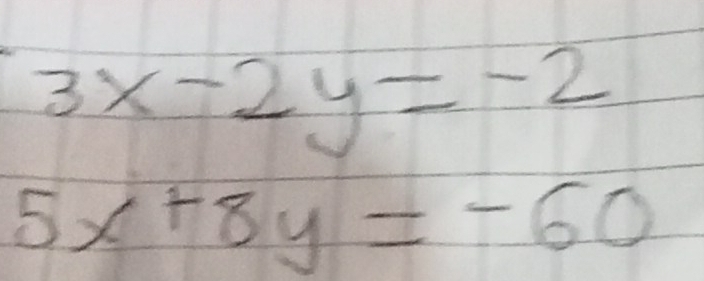 3x-2y=-2
5x+8y=-60